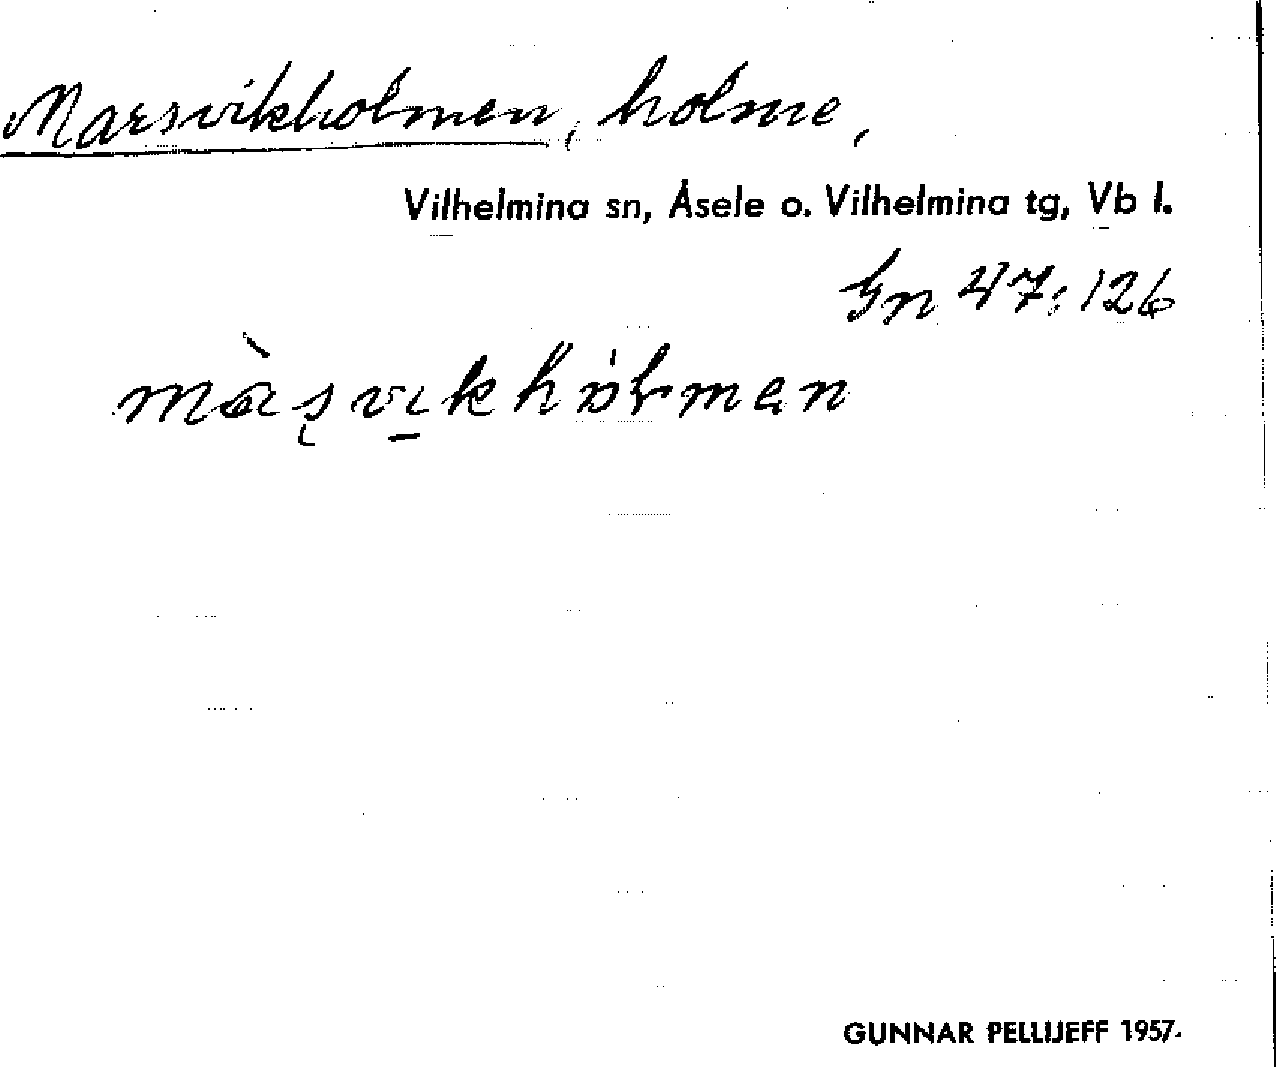 Marsvikholmen, holme,
Vilhelmina sn, Åsele o. Vilhelmina tg, Vb l.
Gn 47:126
GUNNAR PELLIJEFF 1957.